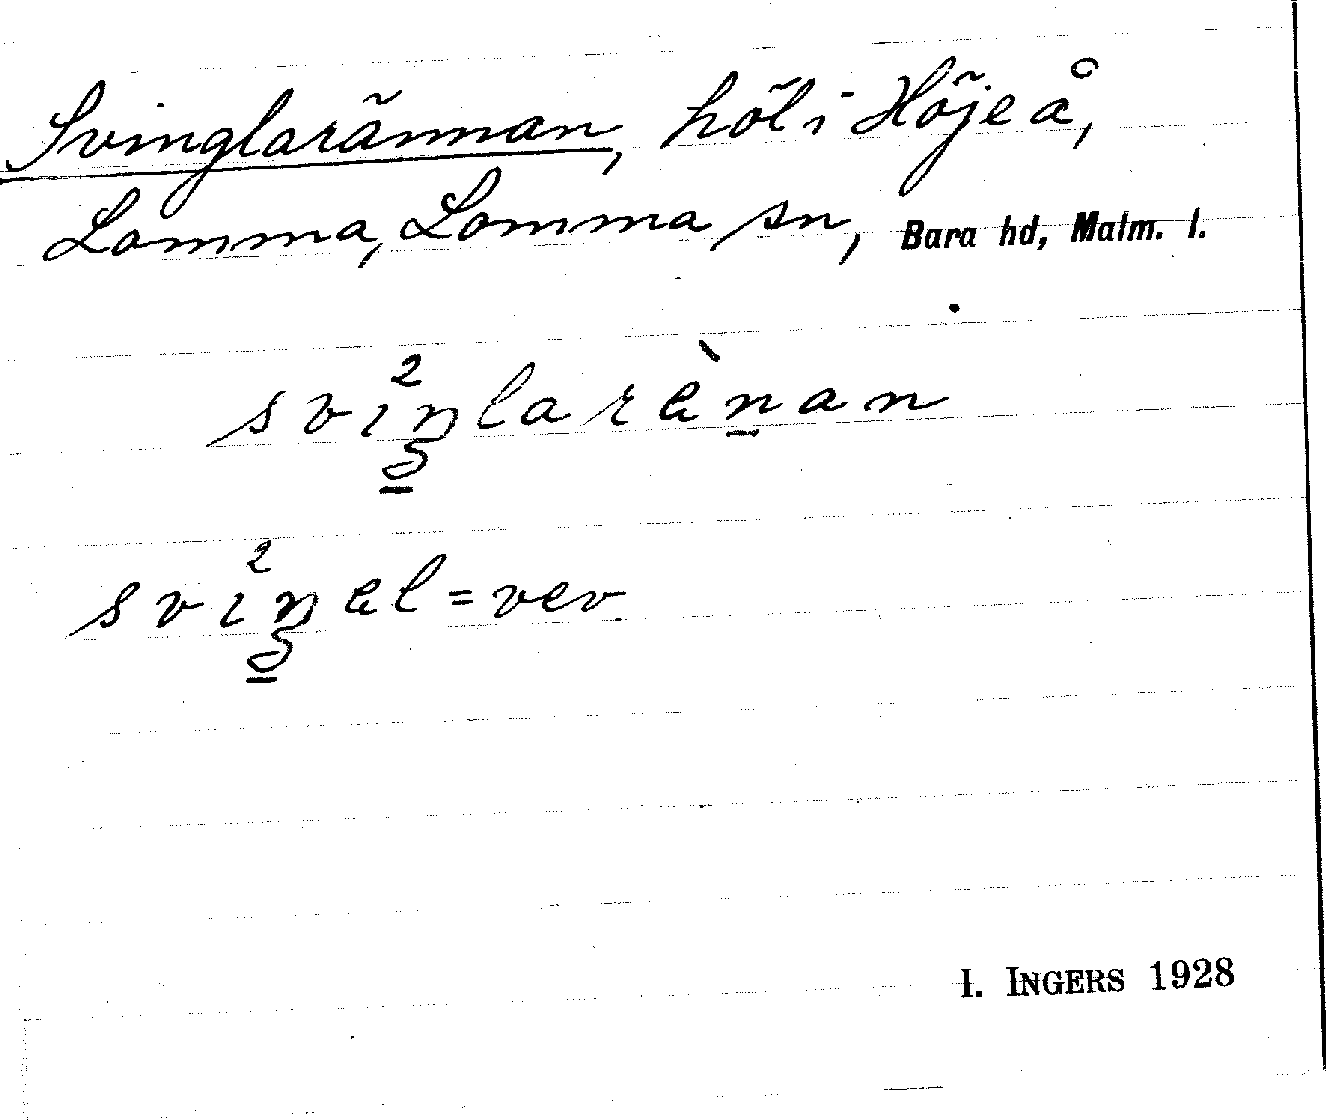 Svinglarännan, höl i Höje å,
Lomma, Lomma sn, Bara hd, Malm. l.
svi²ŋlarènan
svi²ŋel = vev
I. INGERS 1928